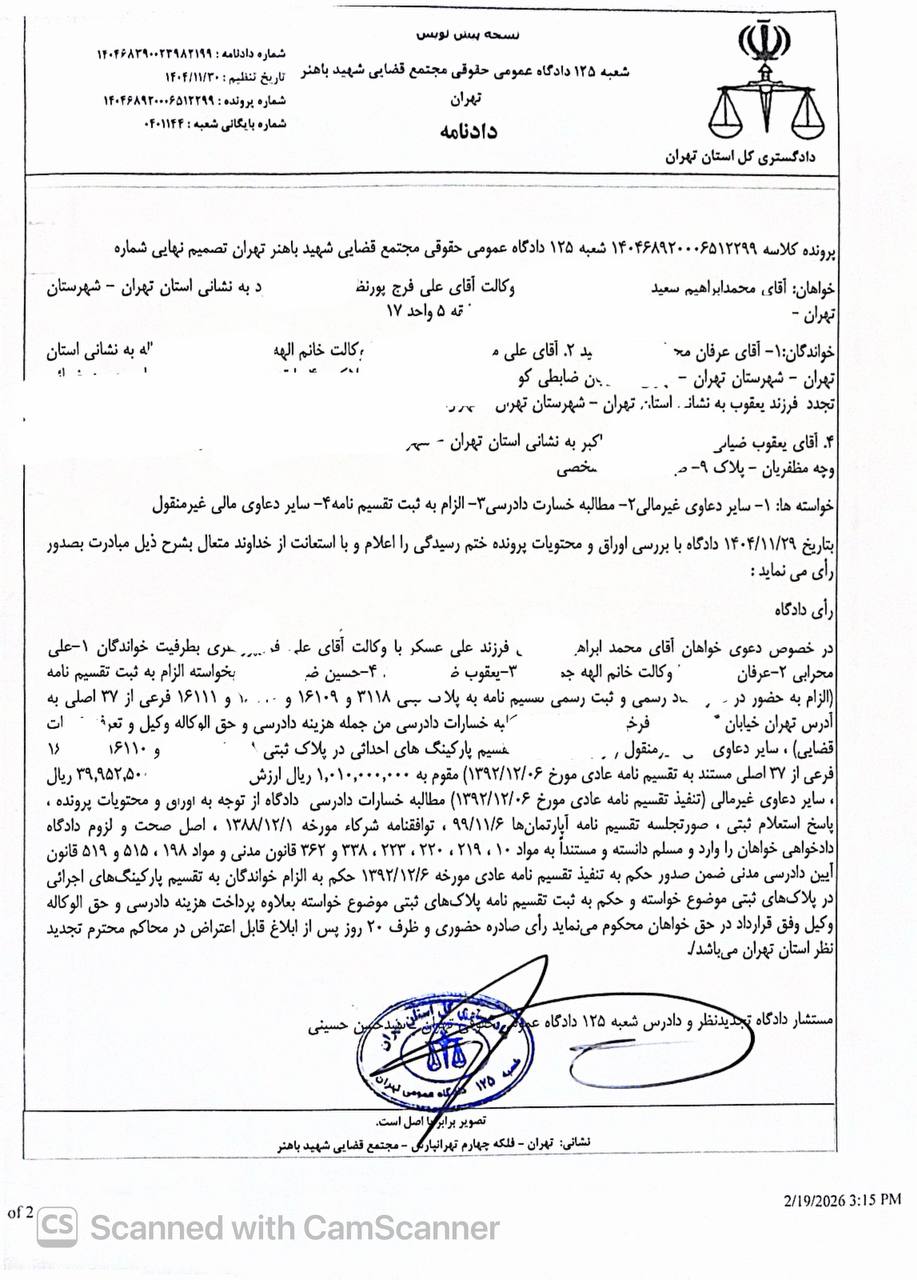 نسخه پیش نویس
شماره دادنامه : ۱۴۰۴۶۸۳۹۰۰۲۳۹۸۲۱۹۹
شعبه ۱۲۵ دادگاه عمومی حقوقی مجتمع قضایی شهید باهنر
تاریخ تنظیم : ۱۴۰۴/۱۱/۳۰
تهران
شماره پرونده : ۱۴۰۴۶۸۹۲۰۰۰۶۵۱۲۲۹۹
دادنامه
شماره بایگانی شعبه : ۰۴۰۱۱۴۴
دادگستری کل استان تهران
پرونده کلاسه ۱۴۰۴۶۸۹۲۰۰۰۶۵۱۲۲۹۹ شعبه ۱۲۵ دادگاه عمومی حقوقی مجتمع قضایی شهید باهنر تهران تصمیم نهایی شماره
خواهان: آقای محمدابراهیم سعید وکالت آقای علی فرج پورنظ د به نشانی استان تهران – شهرستان
تهران – ۵ واحد ۱۷
خواندگان:۱- آقای عرفان ید ۲. آقای علی وکالت خانم الهه به نشانی استان
تهران – شهرستان تهران – ضابطی کو
تجدد فرزند یعقوب به نشانی استان تهران – شهرستان تهران
۴. آقای یعقوب ضیایی اکبر به نشانی استان تهران –
وچه مظفریان – پلاک ۹-
خواسته ها: ۱- سایر دعاوی غیرمالی۲- مطالبه خسارت دادرسی۳- الزام به ثبت تقسیم نامه۴- سایر دعاوی مالی غیرمنقول
بتاریخ ۱۴۰۴/۱۱/۲۹ دادگاه با بررسی اوراق و محتویات پرونده ختم رسیدگی را اعلام و با استعانت از خداوند متعال بشرح ذیل مبادرت بصدور
رأی می نماید :
رأی دادگاه
در خصوص دعوی خواهان آقای محمد ابراهی فرزند علی عسکر با وکالت آقای علی بطرفیت خواندگان ۱-علی
محرابی ۲-عرفان وکالت خانم الهه ۳-یعقوب ۴-حسین بخواسته الزام به ثبت تقسیم نامه
(الزام به حضور در رسمی و ثبت رسمی تقسیم نامه به پلاک ثبتی ۳۱۱۸ و ۱۶۱۰۹ و و ۱۶۱۱۱ فرعی از ۳۷ اصلی به
آدرس تهران خیابان به خسارات دادرسی من جمله هزینه دادرسی و حق الوکاله وکیل و
قضایی) ، سایر دعاوی منقول تقسیم پارکینگ های احداثی در پلاک ثبتی ۱۶۱۱۰ و
فرعی از ۳۷ اصلی مستند به تقسیم نامه عادی مورخ ۱۳۹۲/۱۲/۰۶) مقوم به ۱,۰۱۰,۰۰۰,۰۰۰ ریال ارزش ۳۹,۹۵۲,۵۰۰ ریال
، سایر دعاوی غیرمالی (تنفیذ تقسیم نامه عادی مورخ ۱۳۹۲/۱۲/۰۶) مطالبه خسارات دادرسی دادگاه از توجه به اوراق و محتویات پرونده ،
پاسخ استعلام ثبتی ، صورتجلسه تقسیم نامه آپارتمان‌ها ۹۹/۱۱/۶ ، توافقنامه شرکاء مورخه ۱۳۸۸/۱۲/۱ ، اصل صحت و لزوم دادگاه
دادخواهی خواهان را وارد و مسلم دانسته و مستنداً به مواد ۱۰ ، ۲۱۹ ، ۲۲۰ ، ۲۲۳ ، ۳۳۸ و ۳۶۲ قانون مدنی و مواد ۱۹۸ ، ۵۱۵ و ۵۱۹ قانون
آیین دادرسی مدنی ضمن صدور حکم به تنفیذ تقسیم نامه عادی مورخه ۱۳۹۲/۱۲/۶ حکم به الزام خواندگان به تقسیم پارکینگ‌های اجرائی
در پلاک‌های ثبتی موضوع خواسته و حکم به ثبت تقسیم نامه پلاک‌های ثبتی موضوع خواسته بعلاوه پرداخت هزینه دادرسی و حق الوکاله
وکیل وفق قرارداد در حق خواهان محکوم می‌نماید رأی صادره حضوری و ظرف ۲۰ روز پس از ابلاغ قابل اعتراض در محاکم محترم تجدید
نظر استان تهران می‌باشد/.
مستشار دادگاه تجدیدنظر و دادرس شعبه ۱۲۵ دادگاه عمومی حقوقی تهران - سیدحسن حسینی
دادگستری کل استان تهران
شعبه ۱۲۵ دادگاه عمومی تهران
تصویر برابر با اصل است.
نشانی: تهران – فلکه چهارم تهرانپارس – مجتمع قضایی شهید باهنر
2/19/2026 3:15 PM
of 2
CS Scanned with CamScanner